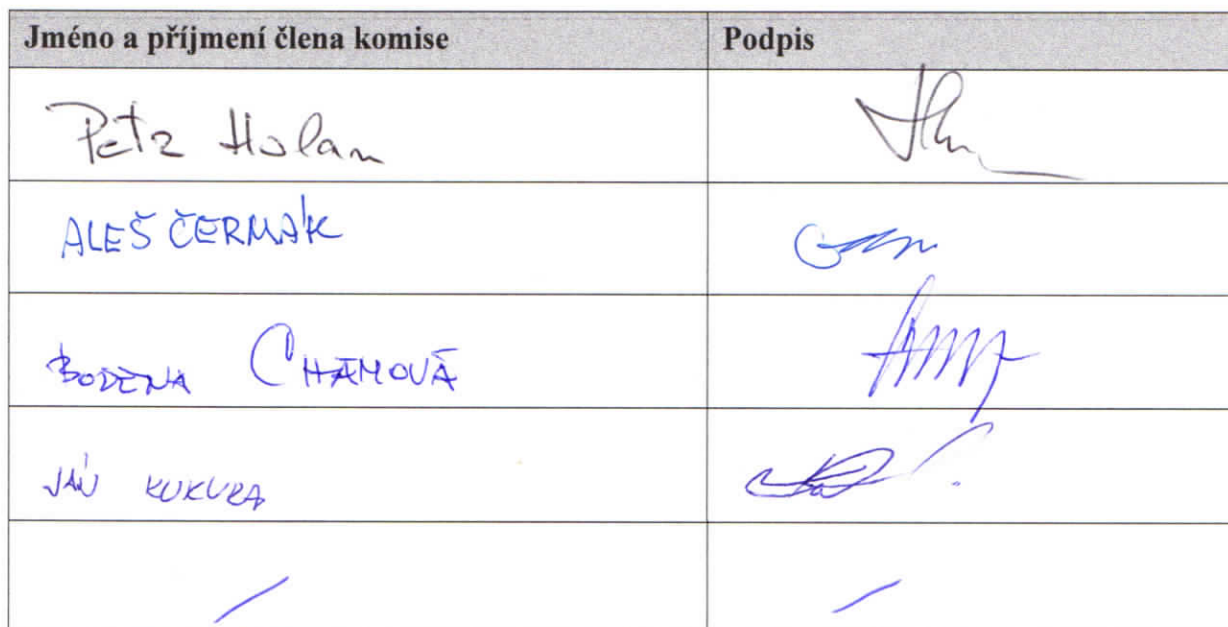 Jméno a příjmení člena komise Podpis
Petr Holan
ALEŠ ČERMÁK
CHÁMOVÁ
JÁN KUKURA